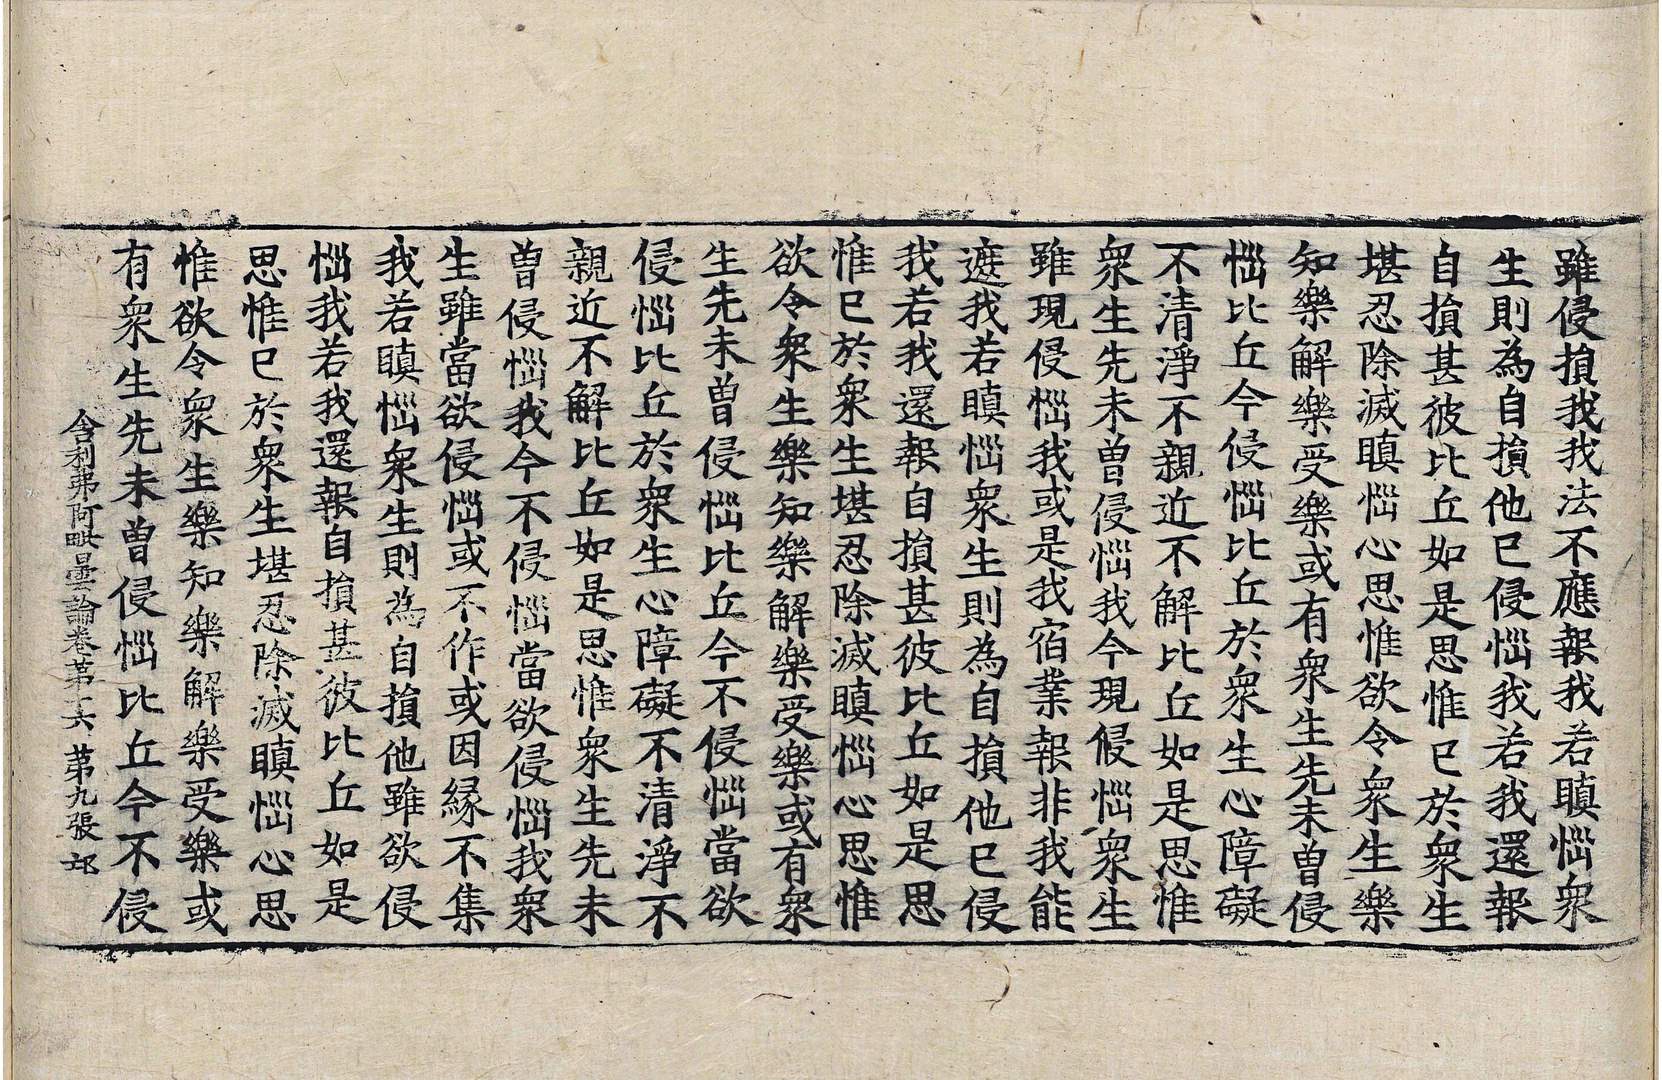 雖侵損我我法不應報我若瞋惱衆
生則為自損他已侵惱我若我還報
自損甚彼比丘如是思惟已於衆生
堪忍除滅瞋惱心思惟欲令衆生樂
知樂解樂受樂或有衆生先未曾侵
惱比丘今侵惱比丘於衆生心障礙
不清淨不親近不解比丘如是思惟
衆生先未曾侵惱我今現侵惱衆生
雖現侵惱我或是我宿業報非我能
遮我若瞋惱衆生則為自損他已侵
我若我還報自損甚彼比丘如是思
惟已於衆生堪忍除滅瞋惱心思惟
欲令衆生樂知樂解樂受樂或有衆
生先未曾侵惱比丘今不侵惱當欲
侵惱比丘於衆生心障礙不清淨不
親近不解比丘如是思惟衆生先未
曾侵惱我今不侵惱當欲侵惱我衆
生雖當欲侵惱或不作或因緣不集
我若瞋惱衆生則為自損他雖欲侵
惱我若我還報自損甚彼比丘如是
思惟已於衆生堪忍除滅瞋惱心思
惟欲令衆生樂知樂解樂受樂或
有衆生先未曾侵惱比丘今不侵
舍利弗阿毗曇論卷第十六 第九張 邱